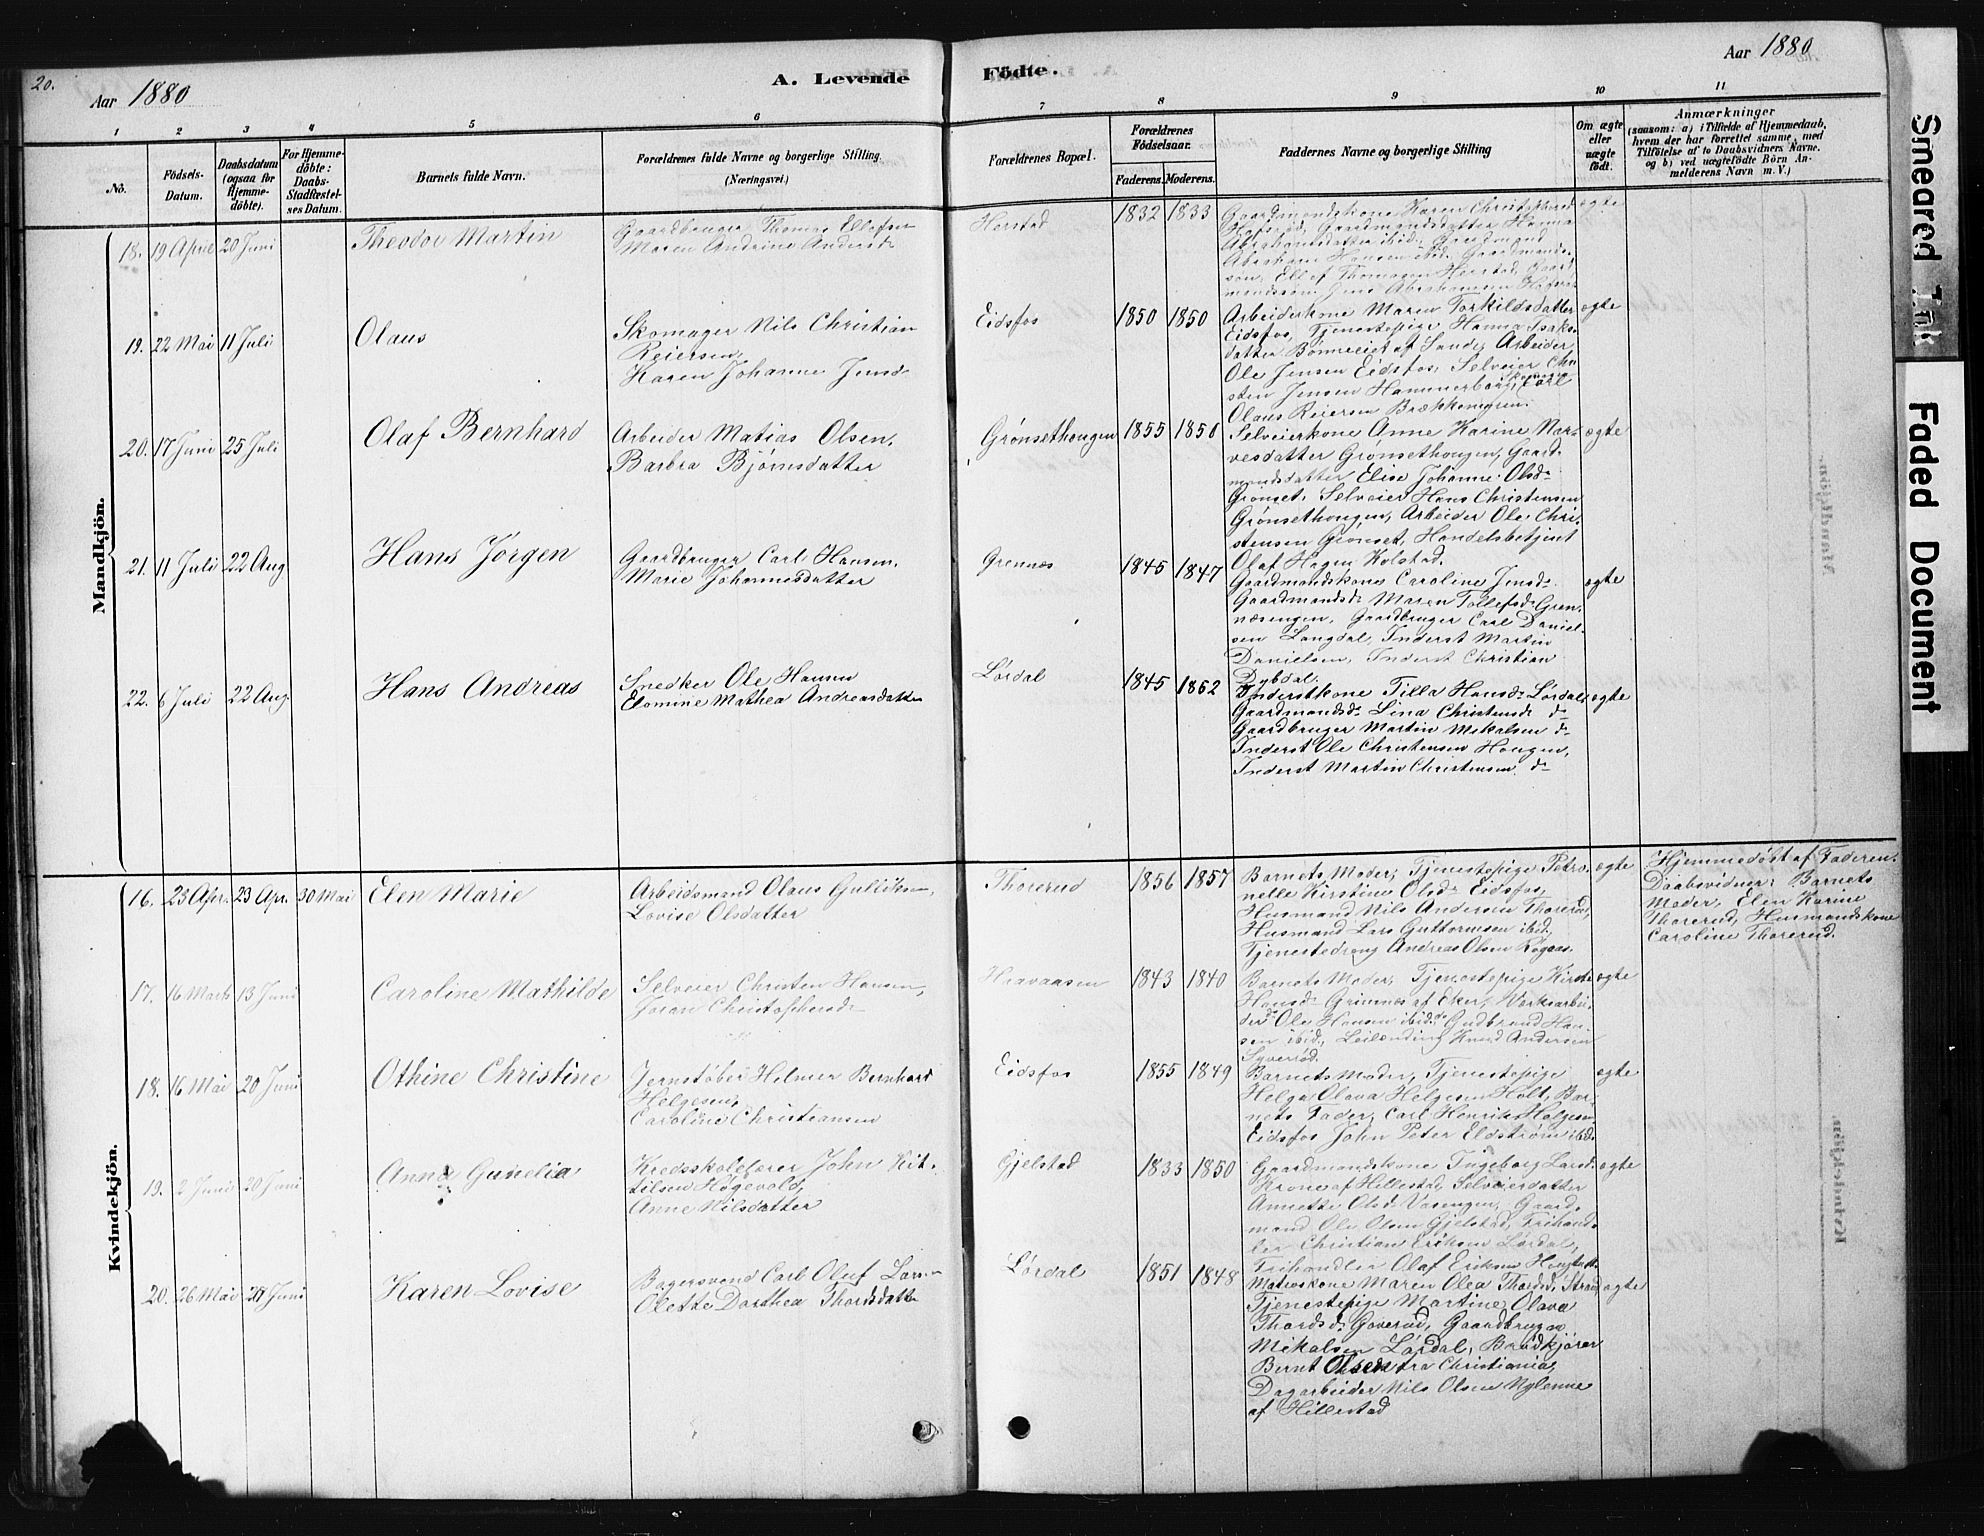 20.
Aar 1880
A. Levende
Födte.
Aar 1880
1 2 3 4 5 6 7 8 9 10 11
No.
Födsels-
Datum.
Daabsdatum
(ogsaa for
Hjemme-
döbte).
For Hjemme-
döbte:
Daabs-
Stadfæstel-
ses Datum.
Barnets fulde Navn.
Forældrenes fulde Navne og borgerlige Stilling
(Næringsvei.)
Forældrenes Bopæl.
Forældrenes
Födselsaar.
Faderens. Moderens.
Faddernes Navne og borgerlige Stilling
Om ægte
eller
uægte
födt.
Anmærkninger
(saasom: a) i Tilfælde af Hjemmedaab,
hvem der har forrettet samme, med
Tilföielse af to Daabsvidners Navne.
og b) ved uægtefödte Börn An-
melderens Navn m. V.)
Mandkjön.
18. 19 April 20 Juni
Theodor Martin
Gaardbruger Thomas Ellefsen
Maren Andrine Andersd.
Herstad
1832 1833
Gaardmandskone Karen Christophersd
Hofsrød, Gaardmandsdatter Hanna
Abrahamsdatter ibid, Gaardmand
Abraham Hansen ibid, Gaardmands-
søn Ellef Thomasen Herstad, Gaard
mandssøn Jens Abrahamsen Hofsrød
ægte
19. 22 Mai 11 Juli
Olaus
Skomager Nils Christian
Reiersen,
Karen Johanne Jensd.
Eidsfos
1850 1850
Arbeiderkone Maren Torkildsdatter
Eidsfos, Tjenestepige Hanna Isaks-
datter Bønneeiet af Sande, Arbeider
Ole Jensen Eidsfos, Selveier Chri
sten Jensen Hammerborg, Carl
Olaus Reiersen Brækkemyren.
ægte
20. 17 Juni 25 Juli
Olaf Bernhard
Arbeider Matias Olsen,
Barbra Bjørnsdatter
Grønsethougen
1855 1850
Selveierkone Anne Karine Nar-
vesdatter Grønsethougen, Gaard-
mandsdatter Elise Johanne Olsd.
Grønset, Selveier Hans Christensen
Grønsethougen, Arbeider Ole Chri-
stensen Grønset, Handelsbetjent
Olaf Hagen Kolstad.
ægte
21. 11 Juli 22 Aug
Hans Jørgen
Gaardbruger Carl Hansen,
Marie Johannesdatter
Grennes
1845 1847
Gaardmandskone Caroline Jensd.
Gaardmandsd. Maren Tollefsd. Gren-
næsengen, Gaardbruger Carl Daniel-
sen Langdal, Inderst Martin
Danielsen, Inderst Christian
Dybdal.
ægte
22. 6 Juli 22 Aug
Hans Andreas
Snedker Ole Hansen
Elomine Mathea Andreasdatter
Lørdal
1845 1862
Inderstkone Tilla Hansd. Lørdal,
Gaardmandsd. Lina Christensd. do
Gaardbruger Martin Mikalsen do
Inderst Ole Christensen Hougen,
Inderst Martin Christensen do
ægte
Kvindekjön.
16. 23 Apr. 23 Apr. 30 Mai
Elen Marie
Arbeidsmand Olaus Gulliksen,
Lovise Olsdatter
Thorerud
1856 1857
Barnets Moder, Tjenestepige Petro-
nelle Kirstine Olsd. Eidsfos,
Husmand Nils Andersen Thorerud,
Husmand Lars Guttormsen ibid,
Tjenestedreng Andreas Olsen Rogaas.
ægte
Hjemmedøbt af Faderen.
Daabsvidner: Barnets
Moder, Elen Karine
Thorerud, Husmandskone
Caroline Thorerud.
17. 16 Marts 13 Juni
Caroline Mathilde
Selveier Christen Hansen,
Joran Christophersd.
Haavaasen
1843 1840
Barnets Moder, Tjenestepige Kirste
Hansd. Grimnes af Eker, Værksarbei-
der Ole Hansen ibid, Gudbrand Han-
sen ibid, Leilending Knud Andersen
Syverød.
ægte
18. 16 Mai 20 Juni
Othine Christine
Jernstøber Helmer Bernhard
Helgesen,
Caroline Christiansen
Eidsfos
1855 1849
Barnets Moder, Tjenestepige
Helga Olava Helgesen Holt, Bar-
nets Fader, Carl Henrik Helgesen
Eidsfos John Peter Eldstrøm ibid
ægte
19. 2 Juni 20 Juni
Anna Gunelia
Kredsskolelærer John Kit-
tilsen Høgevold,
Anne Nilsdatter
Gjelstad
1833 1850
Gaardmandskone Ingeborg Larsd.
Krone af Hillestad, Selveierdatter
Annette Olsd. Vasengen, Gaard-
mand Ole Olsen Gjelstad, Frihand-
ler Christian Eriksen Lørdal,
Frihandler Olaf Eriksen
ægte
20. 26 Mai 20 Juni
Karen Lovise
Bagersvend Carl Oluf Larsen
Olette Dorthea Thordsdatter
Lørdal
1851 1848
Matroskone Maren Olea Thordsd. Strand,
Tjenestepige Martine Olava
Thordsd. Goverud, Gaardbruger
Mikalsen Lørdal, Brødkjører
Bernt Olsen fra Christiania,
Dagarbeider Nils Olsen Nylenne
af Hillestad
ægte
Smeared Ink
Faded Document